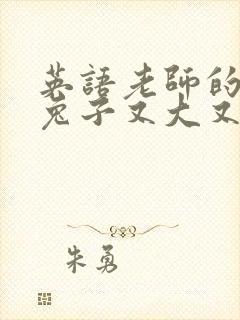 英語老師的
兔子又大又
朱勇